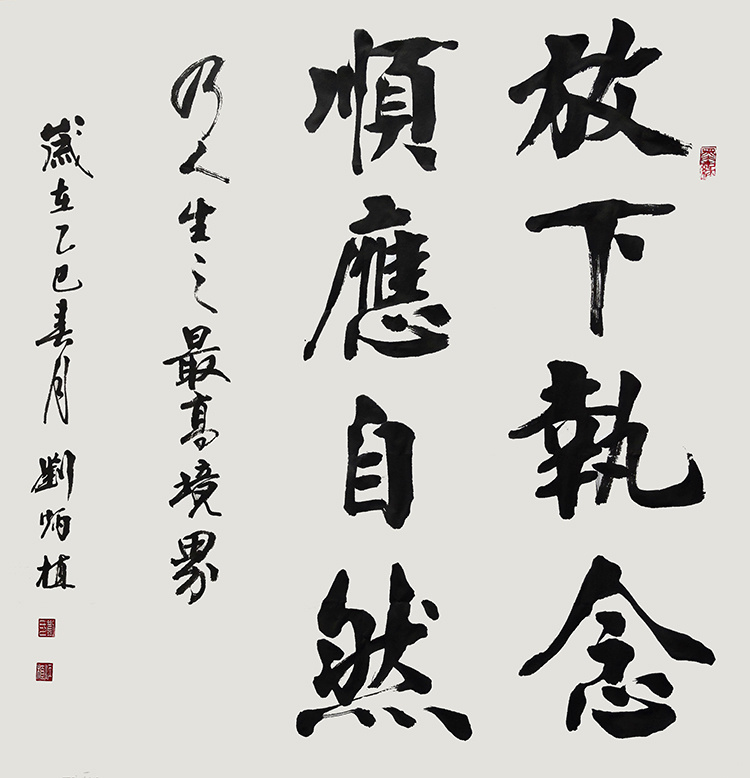 放下執念
順應自然
乃人生之最高境界
歲在乙巳春月劉炳植